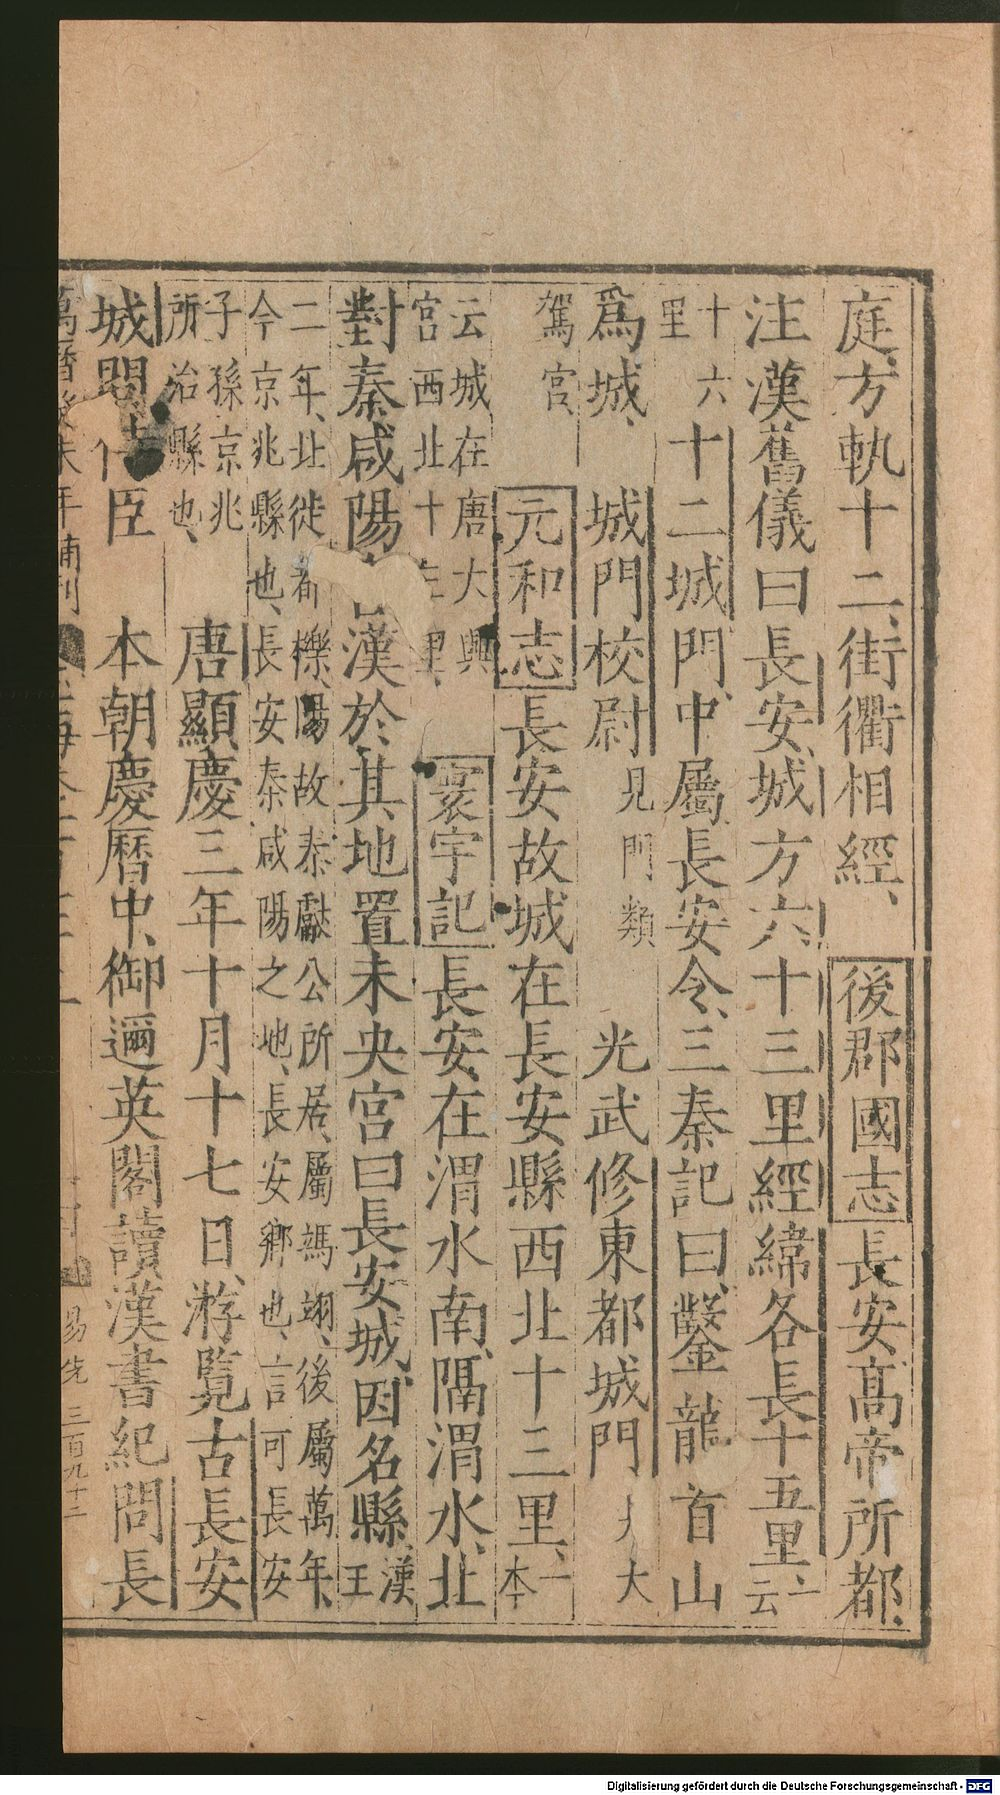 庭、方軌十二、街衢相經、後郡國志長安、高帝所都、
注漢舊儀曰長安城方六十三里經緯各長十五里、一云
十六里十二城門、中屬長安令、三秦記曰、鑿龍首山
爲城、城門校尉見門類光武修東都城門大
駕宮元和志長安故城在長安縣西北十三里、一本
云城在唐大興宮西北十里、寰宇記長安、在渭水南、隔渭水、北
對秦咸陽漢於其地置未央宮曰長安城、因名縣、漢王
二年、北徙都櫟陽、故秦獻公所居、屬馮翊、後屬萬年、
今京兆縣也、長安、秦咸陽之地、長安鄉也、言可長安
子孫京兆
所治縣也、唐顯慶三年十月十七日、游覽古長安
城問侍臣本朝慶曆中、御邇英閣讀漢書紀問長
萬曆癸未年補刊
易先
三百九十二
Digitalisierung gefördert durch die Deutsche Forschungsgemeinschaft - DFG